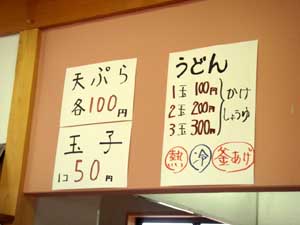 天ぷら
各100円
玉子
1コ50円
うどん
1玉100円
2玉200円
3玉300円
かけ
しょうゆ
熱 冷 釜あげ